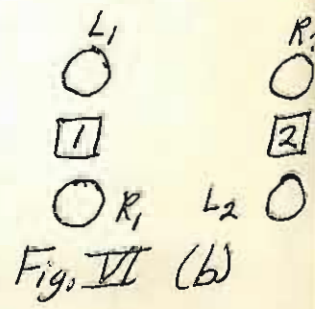 L1 R2
1 2
R1 L2
Fig. VI (b)